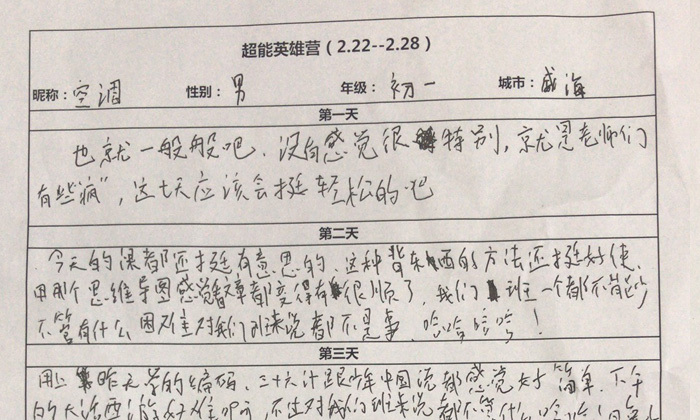 超能英雄营（2.22--2.28）
昵称：空调 性别：男 年级：初一 城市：威海
第一天
也就一般般吧，没有感觉很特别，就是老师们
有些“疯”，这七天应该会挺轻松的吧
第二天
今天的课都还挺有意思的，这种背东西的方法还挺好使，
用那个思维导图感觉背课文都变得很顺了，我们班一个都不能少
不管有什么困难对我们班来说都不是事，哈哈哈哈！
第三天
用上昨天学的编码，三十六计跟少年中国说都感觉好简单，下午
不过对我们班来说都不算什么